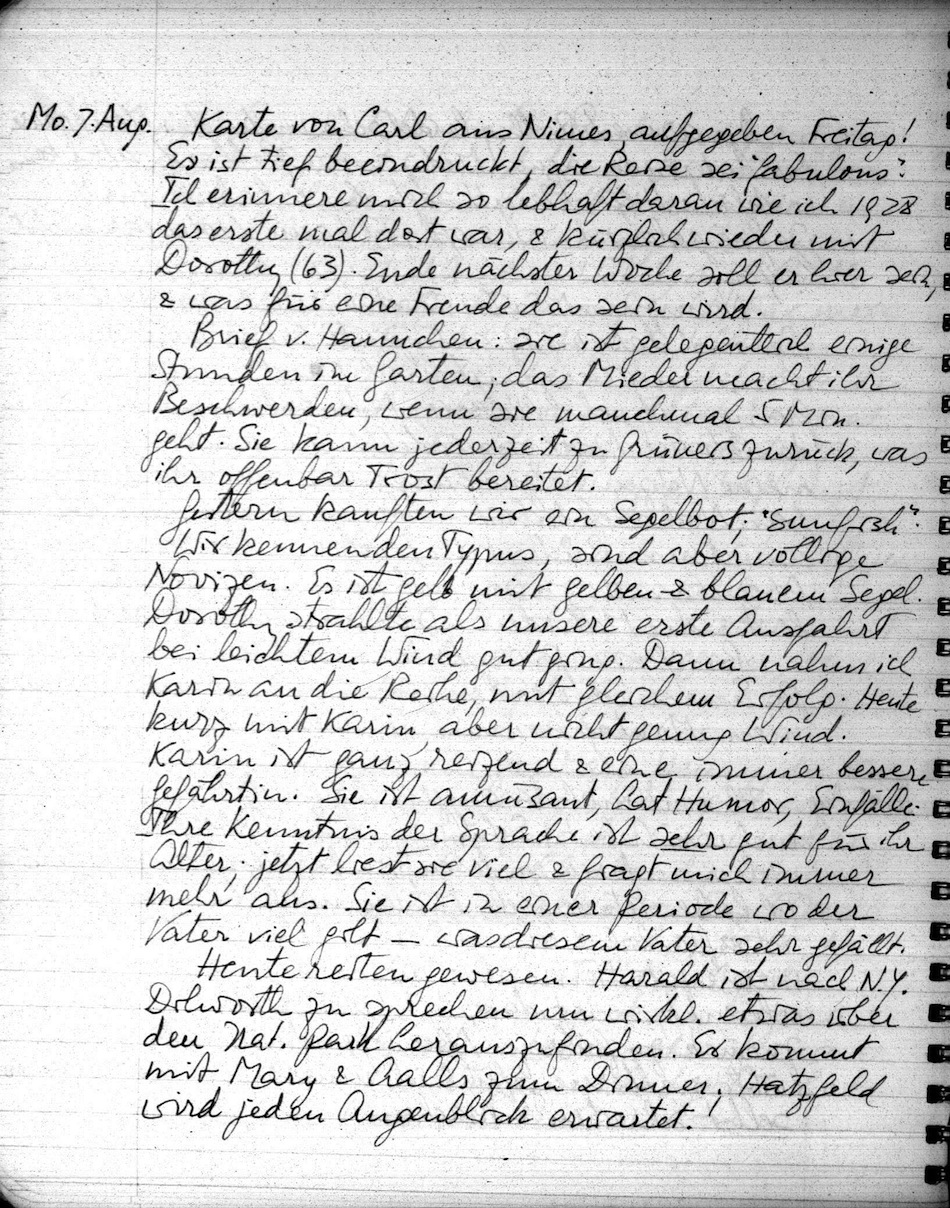 Mo. 7. Aug. Karte von Carl aus Nimes, aufgegeben Freitag!
Er ist tief beeindruckt, die Reise sei "fabulous".
Ich erinnere mich so lebhaft daran wie ich 1928
das erste mal dort war, & kürzlich wieder mit
Dorothy (63). Ende nächster Woche soll er hier sein,
& was für eine Freude das sein wird.
Brief v. Hannichen: sie ist gelegentlich einige
Stunden im Garten, das Mieder macht ihr
Beschwerden, wenn sie manchmal 5 Min.
geht. Sie kann jederzeit zu Grüners zurück, was
ihr offenbar Trost bereitet.
Gestern kauften wir ein Segelbot, "Sunfish".
Wir kennen den Typus, sind aber völlige
Novizen. Es ist gelb mit gelben & blauem Segel.
Dorothy strahlte als unsere erste Ausfahrt
bei leichtem Wind gut ging. Dann nahm ich
Karin an die Reihe, mit gleichem Erfolg. Heute
kurz mit Karin, aber nicht genug Wind.
Karin ist ganz reizend & eine immer bessere
Gefährtin. Sie ist amüsant, hat Humor, Einfälle.
Ihre Kenntnis der Sprache ist sehr gut für ihr
Alter; jetzt liest sie viel & fragt mich immer
mehr aus. Sie ist in einer Periode wo der
Vater viel gilt — was diesem Vater sehr gefällt.
Heute reiten gewesen. Harald ist nach N.Y.
Dilworth zu sprechen um wirkl. etwas über
den Nat. Park herauszufinden. Er kommt
mit Mary & Aalls zum Dinner; Hatzfeld
wird jeden Augenblick erwartet.